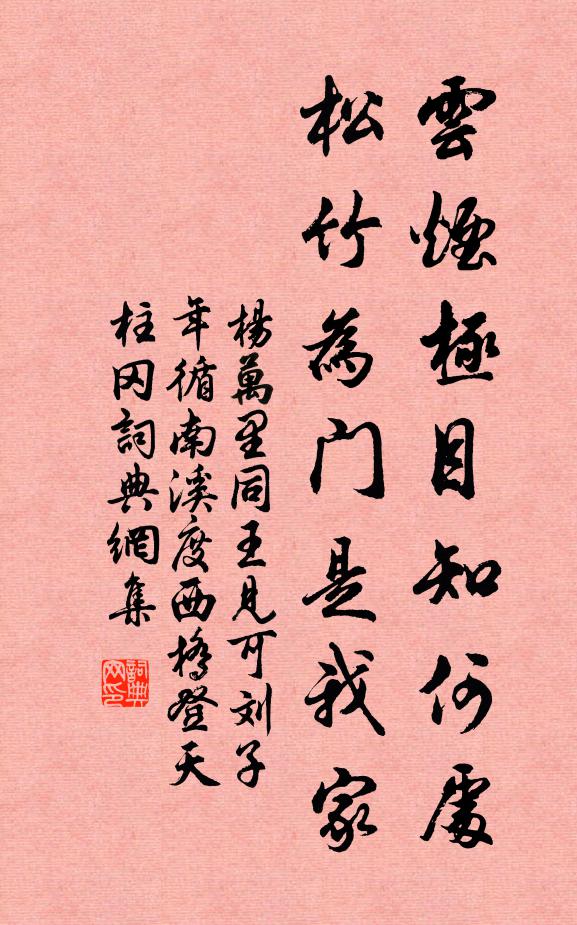 雲煙極目知何處
松竹為門是我家
楊萬里同王見可刘子
年循南溪度西橋登天
柱冈詞典網集
詞典网印